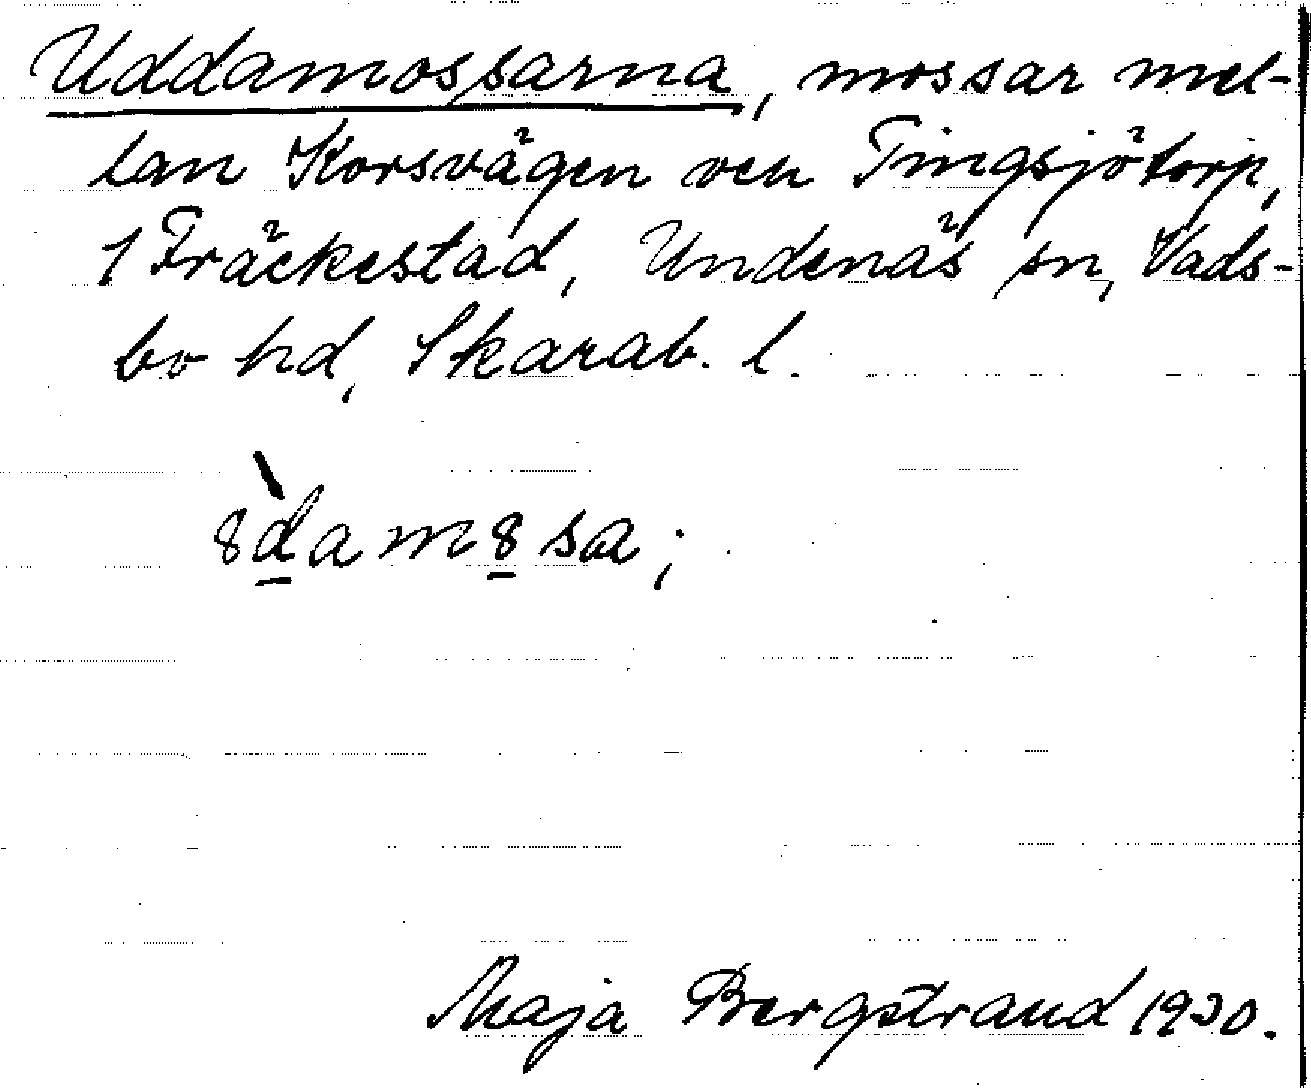 Uddamossarna, mossar mel-
lan Korsvägen och Tingsjötorp,
1 Fräckestad, Undenäs sn, Vads-
bo hd, Skarab. l.
8̀dam8sa;
Maja Bergstrand 1930.